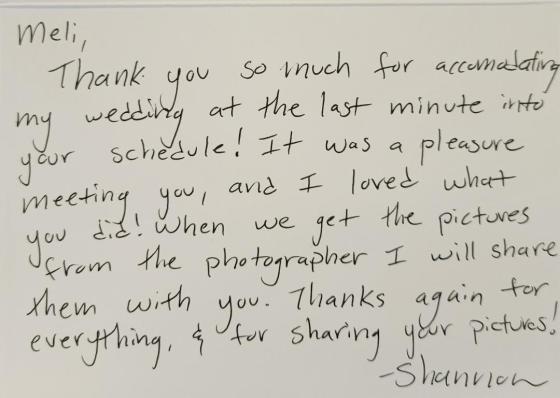 Meli,
Thank you so much for accomodating
my wedding at the last minute into
your schedule! It was a pleasure
meeting you, and I loved what
you did! When we get the pictures
from the photographer I will share
them with you. Thanks again for
everything, & for sharing your pictures!
-Shannon